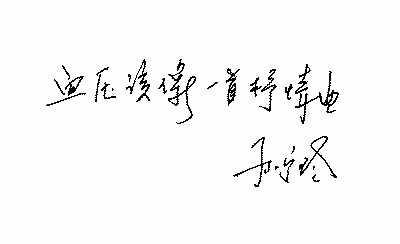 血压该像一首抒情曲
孙宁玲